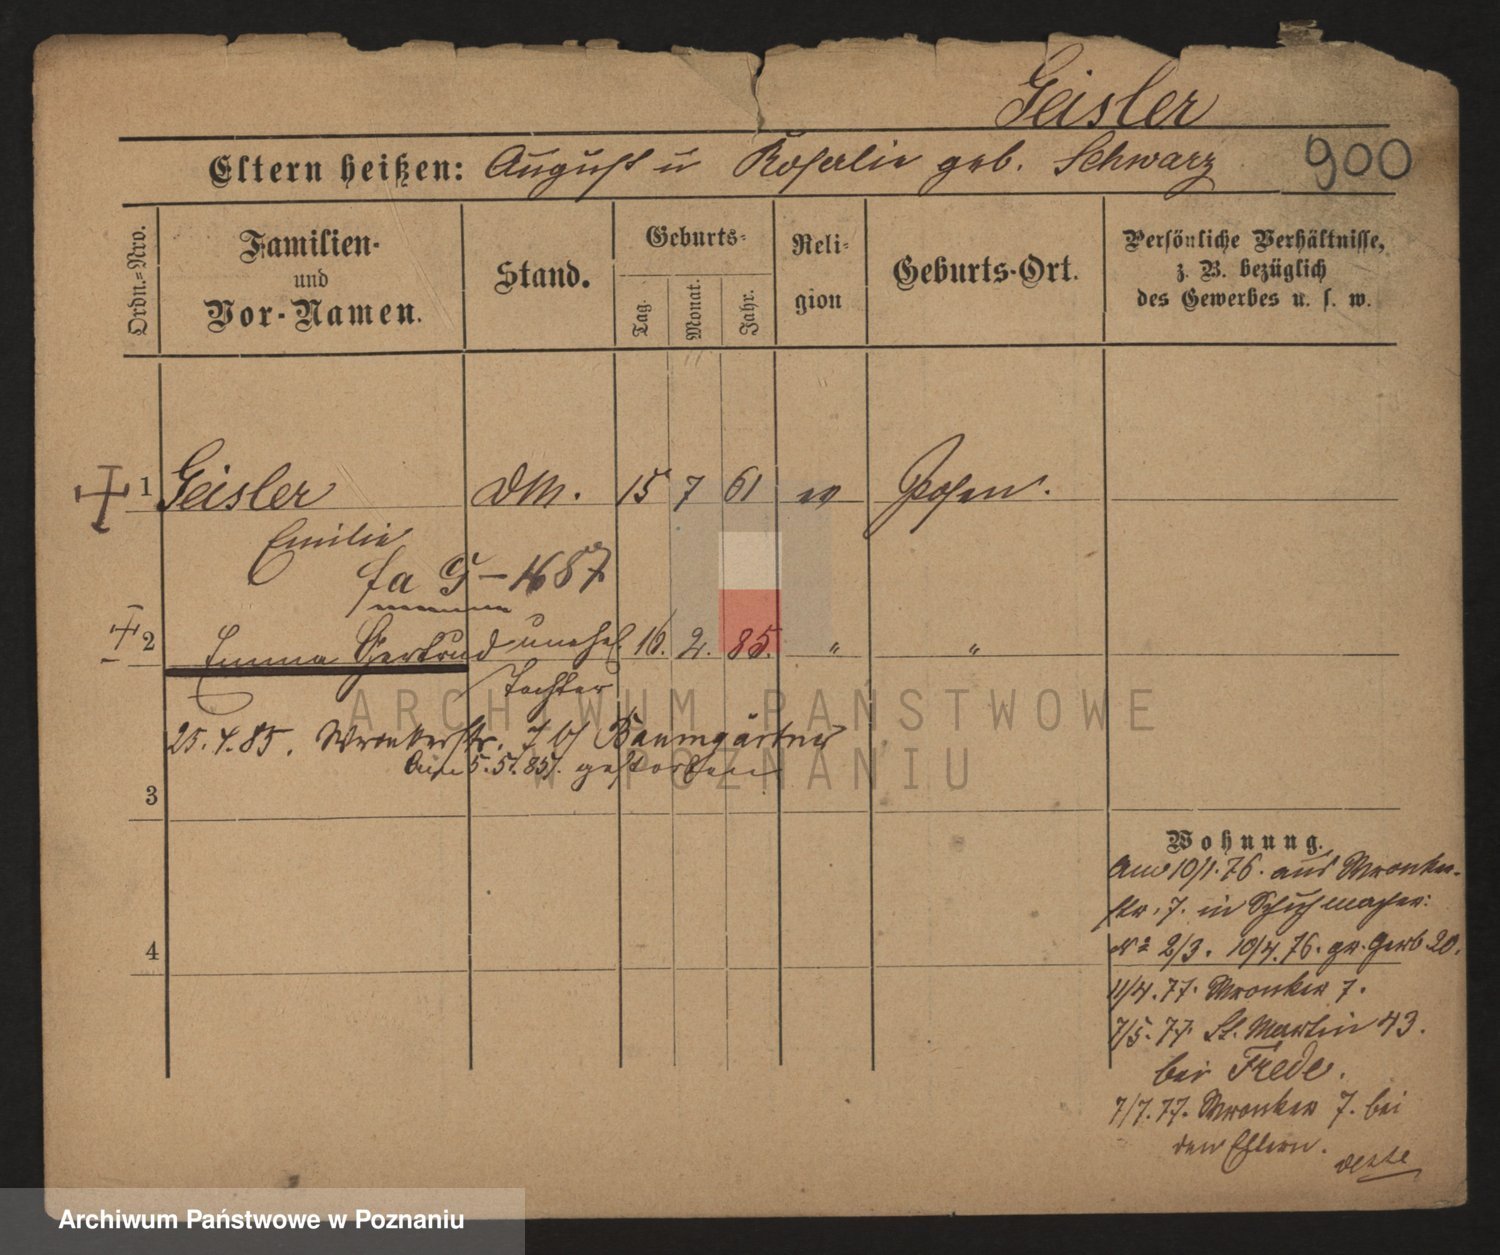 Geisler
Eltern heißen: August u Rosalie geb. Schwarz 900
Ordn.=Nro.
Familien-
und
Vor-Namen.
Stand.
Geburts-
Tag.
Monat.
Jahr.
Reli-
gion
Geburts-Ort.
Persönliche Verhältnisse,
z. B. bezüglich
des Gewerbes u. s. w.
1 Geisler DM. 15 7 61 ev Posen.
Emilie
fa G - 1687
2 Emma Gertrud unehel. 16. 2. 85. " "
Tochter
25.4.85. Wronkerstr. 7 b/ Baumgärtner
Am 5.5.85. gestorben
3
4
Wohnung.
Am 10/1.76. aus Wronker-
str. 7. in Schuhmacher:
No 2/3. 10/4.76. gr. Gerb 20.
11/4.77. Wronker 7.
7/5.77. St. Martin 43.
bei Frede.
7/7.77. Wronker 7. bei
den Eltern.
ARCHIWUM PAŃSTWOWE
W POZNANIU
Archiwum Państwowe w Poznaniu